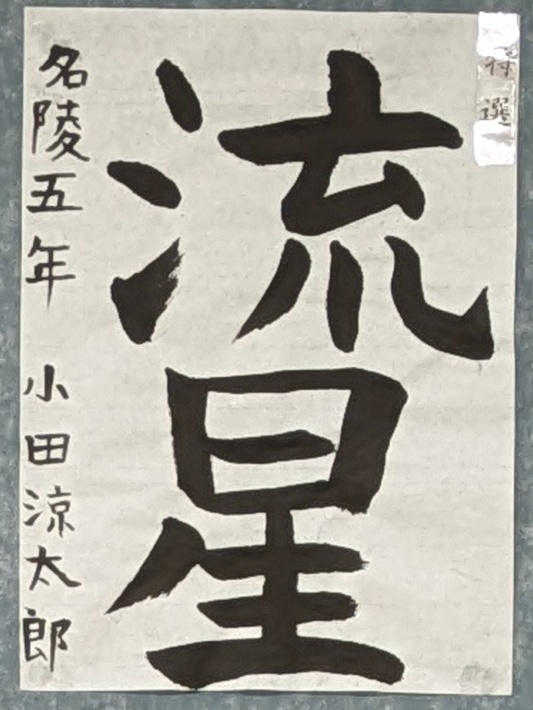 特選
流星
名陵五年 小田涼太郎